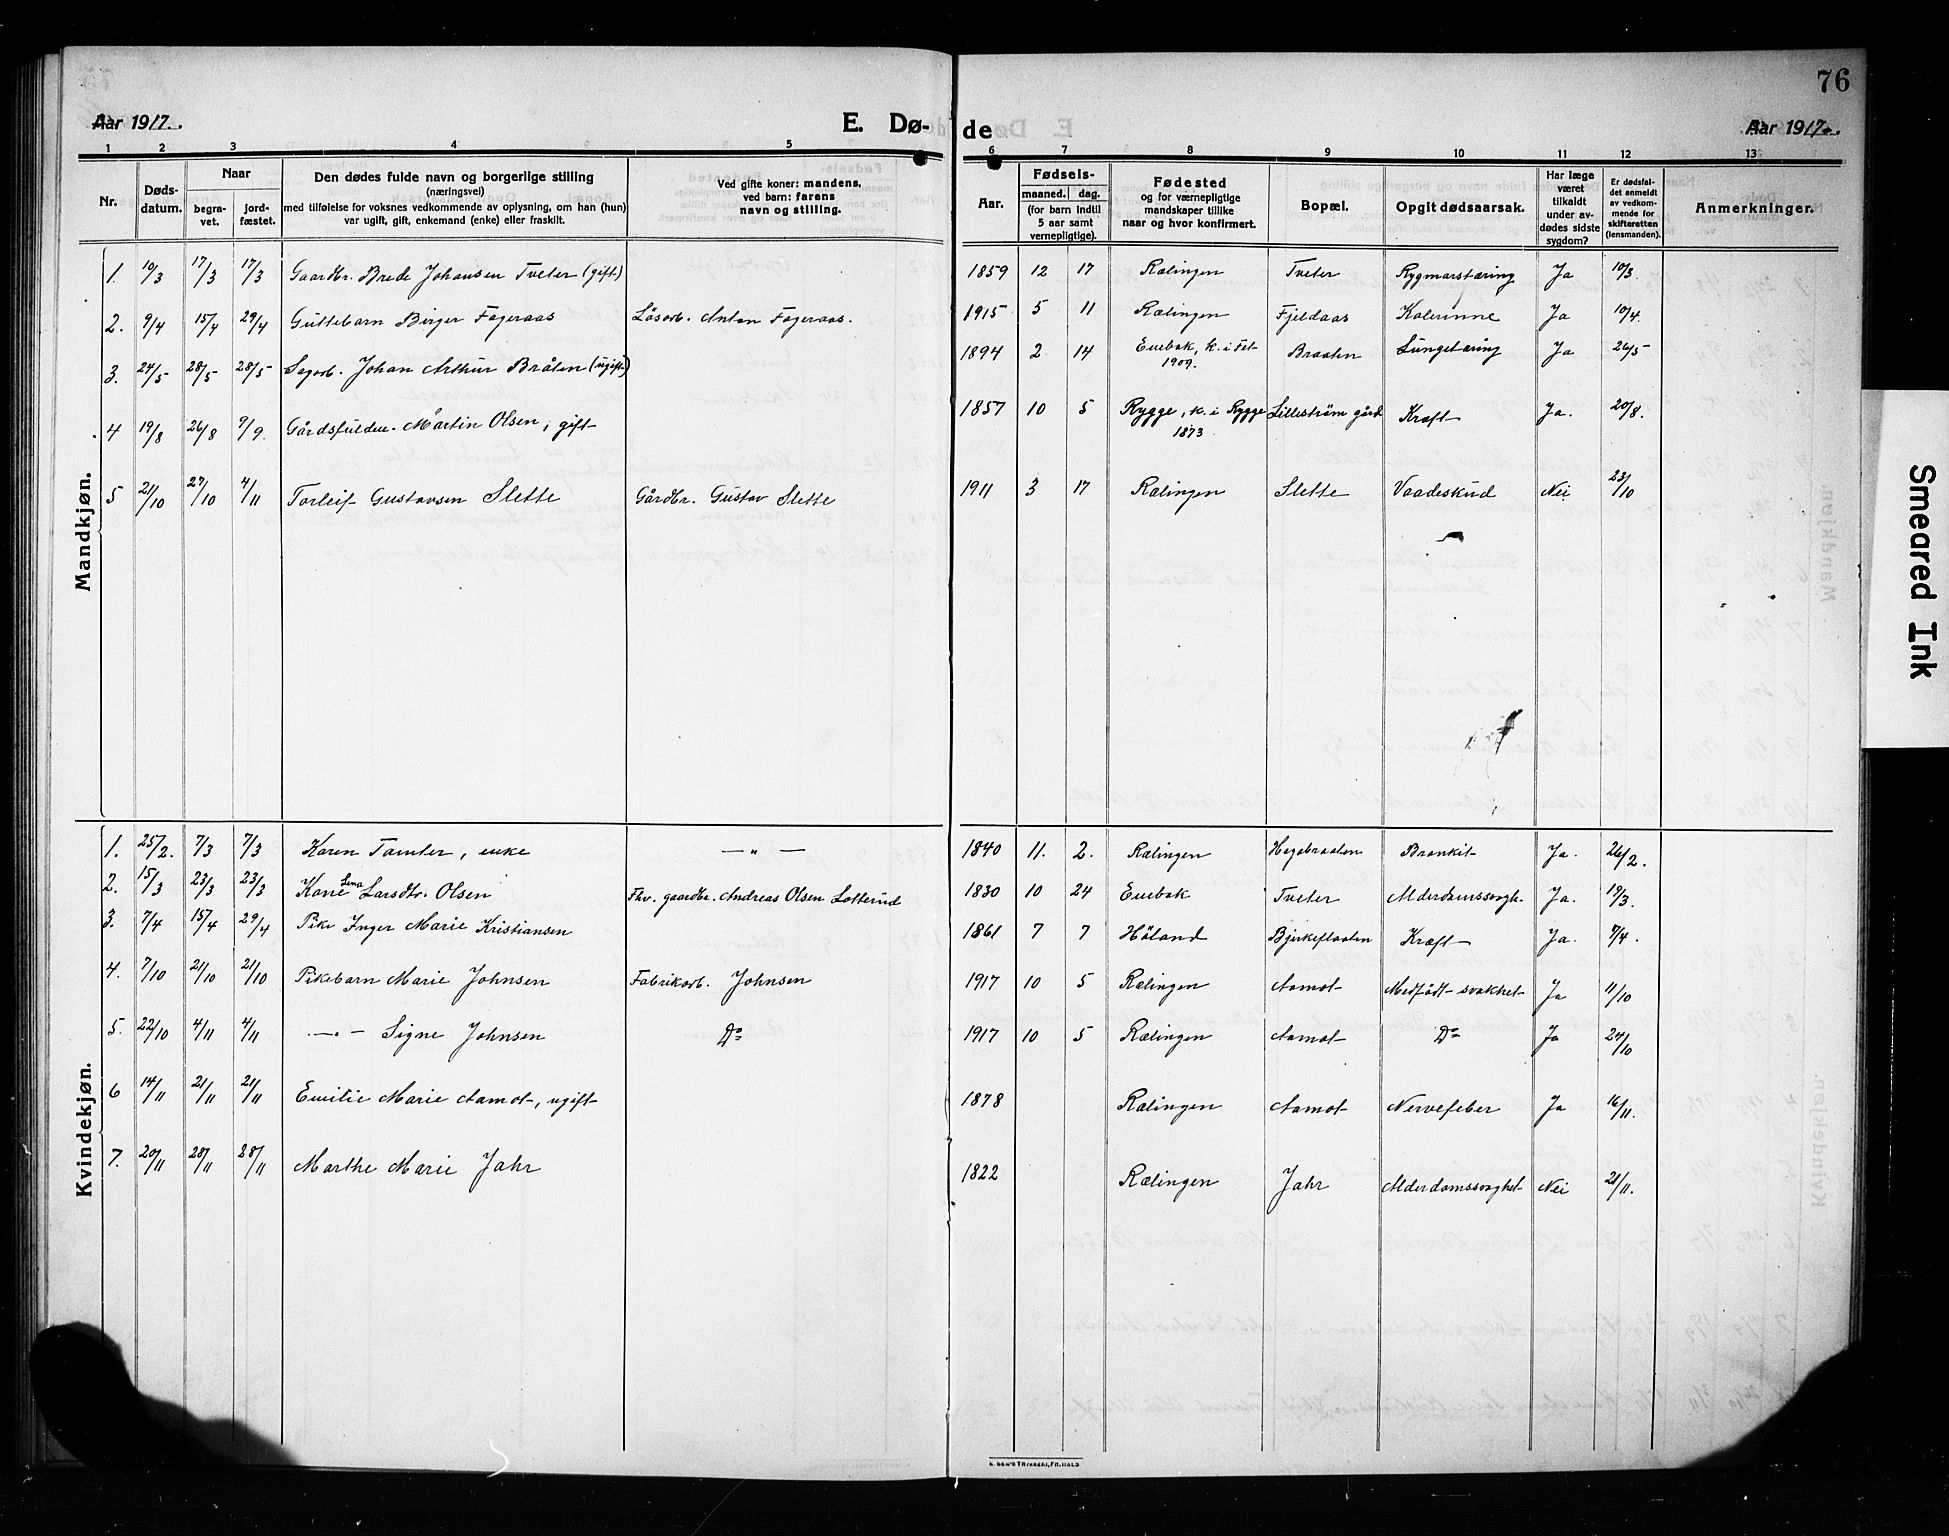 76
Aar 1917.
E. Dø-
de
Aar 1917.
1 2 3 4 5 6 7 8 9 10 11 12 13
Nr.
Døds-
datum.
Naar
begra-
vet.
jord-
fæstet.
Den dødes fulde navn og borgerlige stilling
(næringsvei)
med tilføielse for voksnes vedkommende av oplysning, om han (hun)
var ugift, gift, enkemand (enke) eller fraskilt.
Ved gifte koner: mandens,
ved barn: farens
navn og stilling.
Aar.
Fødsels-
maaned. dag.
(for barn indtil
5 aar samt
vernepligtige).
Fødested
og for værnepligtige
mandskaper tillike
naar og hvor konfirmert.
Bopæl.
Opgit dødsaarsak.
Har læge
været
tilkaldt
under av-
dødes sidste
sygdom?
Er dødsfal-
det anmeldt
av vedkom-
mende for
skifteretten
(lensmanden).
Anmerkninger.
Mandkjøn.
1. 10/3 17/3 17/3 Gaardbr. Brede Johansen Tveter (gift) 1859 12 17 Rælingen Tveter Rygmarstæring Ja 10/3.
2. 9/4 15/4 29/4 Guttebarn Birger Fageraas Løsarb. Anton Fageraas. 1915 5 11 Rælingen Fjeldaas Kolerinne Ja 10/4.
3. 24/5 28/5 28/5 Sagarb. Johan Arthur Bråten (ugift) 1894 2 14 Enebak, k. i Fet 1909. Braaten Lungetæring Ja 26/5
4 19/8 26/8 9/9. Gårdsfuldm. Martin Olsen, gift 1857 10 5 Rygge, k. i Rygge 1873. Lillestrøm gård Kræft Ja. 20/8.
5 21/10 27/10 4/11 Torleif Gustavsen Slette Gårdbr. Gustav Slette 1911 3 17 Rælingen Slette Vaadeskud Nei 23/10
Kvindekjøn.
1. 25/2. 7/3 7/3 Karen Tamter, enke — " — 1840 11. 2. Rælingen Hegabraaten Bronkit Ja. 26/2.
2. 15/3 23/3 23/3 Kane Lina Larsdtr. Olsen Fhv. gaardbr. Andreas Olsen Lotterud 1830 10 24 Enebak Tveter Alderdomssvagh. Ja. 19/3.
3. 7/4 15/4 29/4 Pike Inger Marie Kristiansen 1861 7 7 Høland Bjerkeflaaten Kræft Ja. 9/4.
4. 7/10 21/10 21/10 Pikebarn Marie Johnsen Fabrikarb. Johnsen 1917 10 5 Rælingen Aamot Medfødt svakhet Ja 11/10
5. 22/10 4/11 4/11 —"— Signe Johnsen Do 1917 10 5 Rælingen Aamot Do Ja 24/10
6 14/11 21/11 21/11 Emilie Marie Aamot, ugift 1878 Rælingen Aamot Nervefeber Ja 16/11.
7. 20/11 28/11 28/11 Marthe Marie Jahr 1822 Rælingen Jahr Alderdomssvaghet Nei 21/11.
Smeared Ink